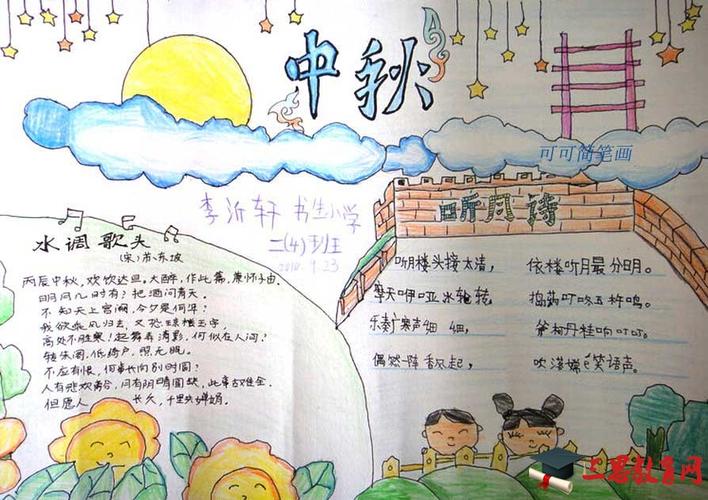 中秋
可可简笔画
李沂轩 书生小学
二(4)班
2010.9.23
听月诗
水调歌头
(宋)苏东坡
丙辰中秋,欢饮达旦。大醉,作此篇,兼怀子由。
明月几时有?把酒问青天。
不知天上宫阙,今夕是何年?
我欲乘风归去,又恐琼楼玉宇,
高处不胜寒!起舞弄清影,何似在人间?
转朱阁,低绮户,照无眠。
不应有恨,何事长向别时圆?
人有悲欢离合,月有阴晴圆缺,此事古难全。
但愿人 长久,千里共婵娟。
听月楼头接太清, 依楼听月最分明。
摩天咿哑冰轮转, 捣药叮咚玉杵鸣。
乐奏广寒声细 细, 斧柯丹桂响叮叮。
偶然阵 香风起, 吹落嫦娥笑语声。
教育网